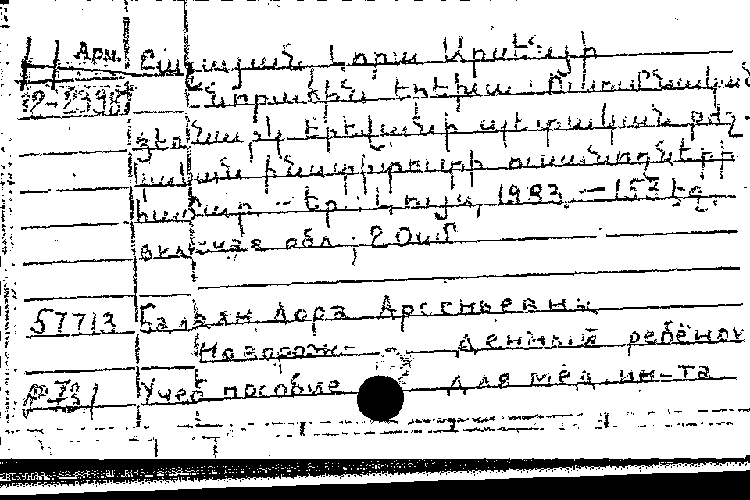 Арм. Բալայան Լորա Արսենի
12-2398 Նորածին երեխա : Ուսումնական
ձեռնարկ Երևանի պետական բժշ-
կական ինստիտուտի ուսանողների
համար. - Եր.: Լույս, 1983. - 153 էջ.
включая обл.; 20սմ
57713 Балаян Лора Арсеньевны
Новорож- денный ребёнок
Учеб пособие для мед. ин-та